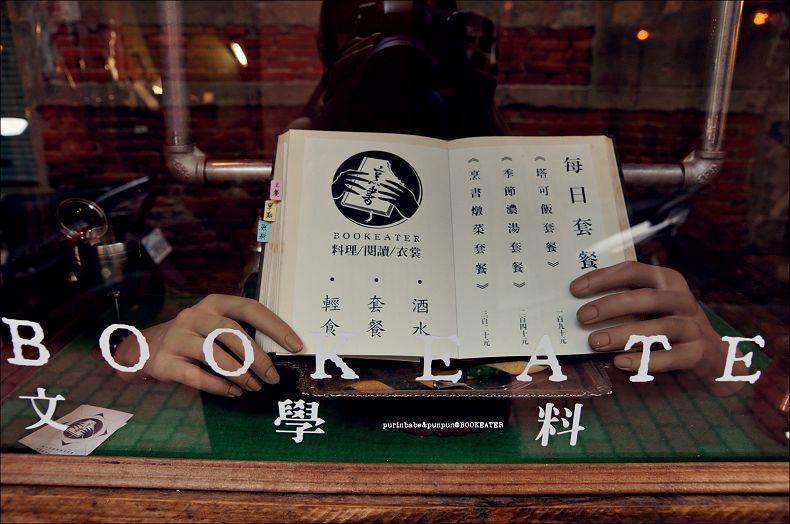 烹書
BOOKEATER
料理/閱讀/衣裳
•酒水
•套餐
•輕食
每日套餐
《塔可飯套餐》 一百九十元
《季節濃湯套餐》 二百四十元
《烹書燉菜套餐》 三百二十元
BOOKEATER
文學料
purinbabe&punpun@BOOKEATER